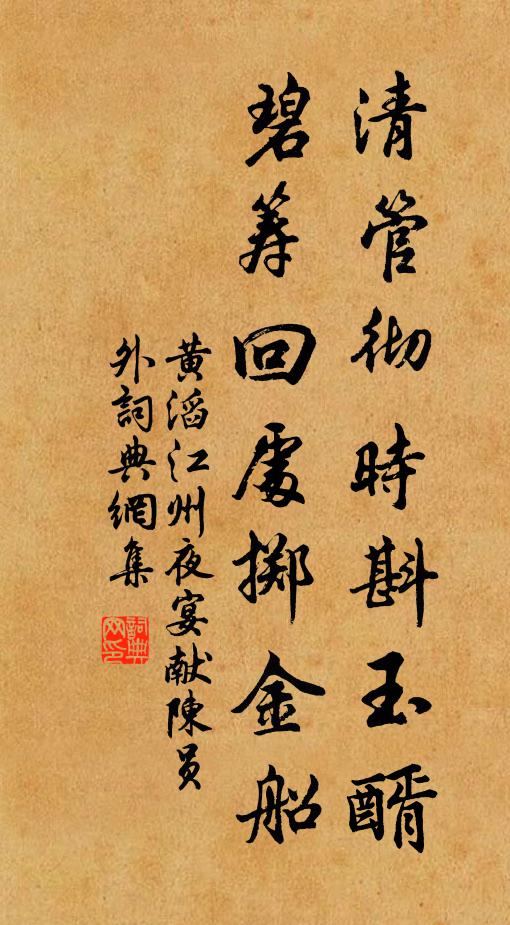 清管彻時斟玉醑
碧筹回處掷金船
黄滔江州夜宴献陳員
外詞典網集
詞典網印